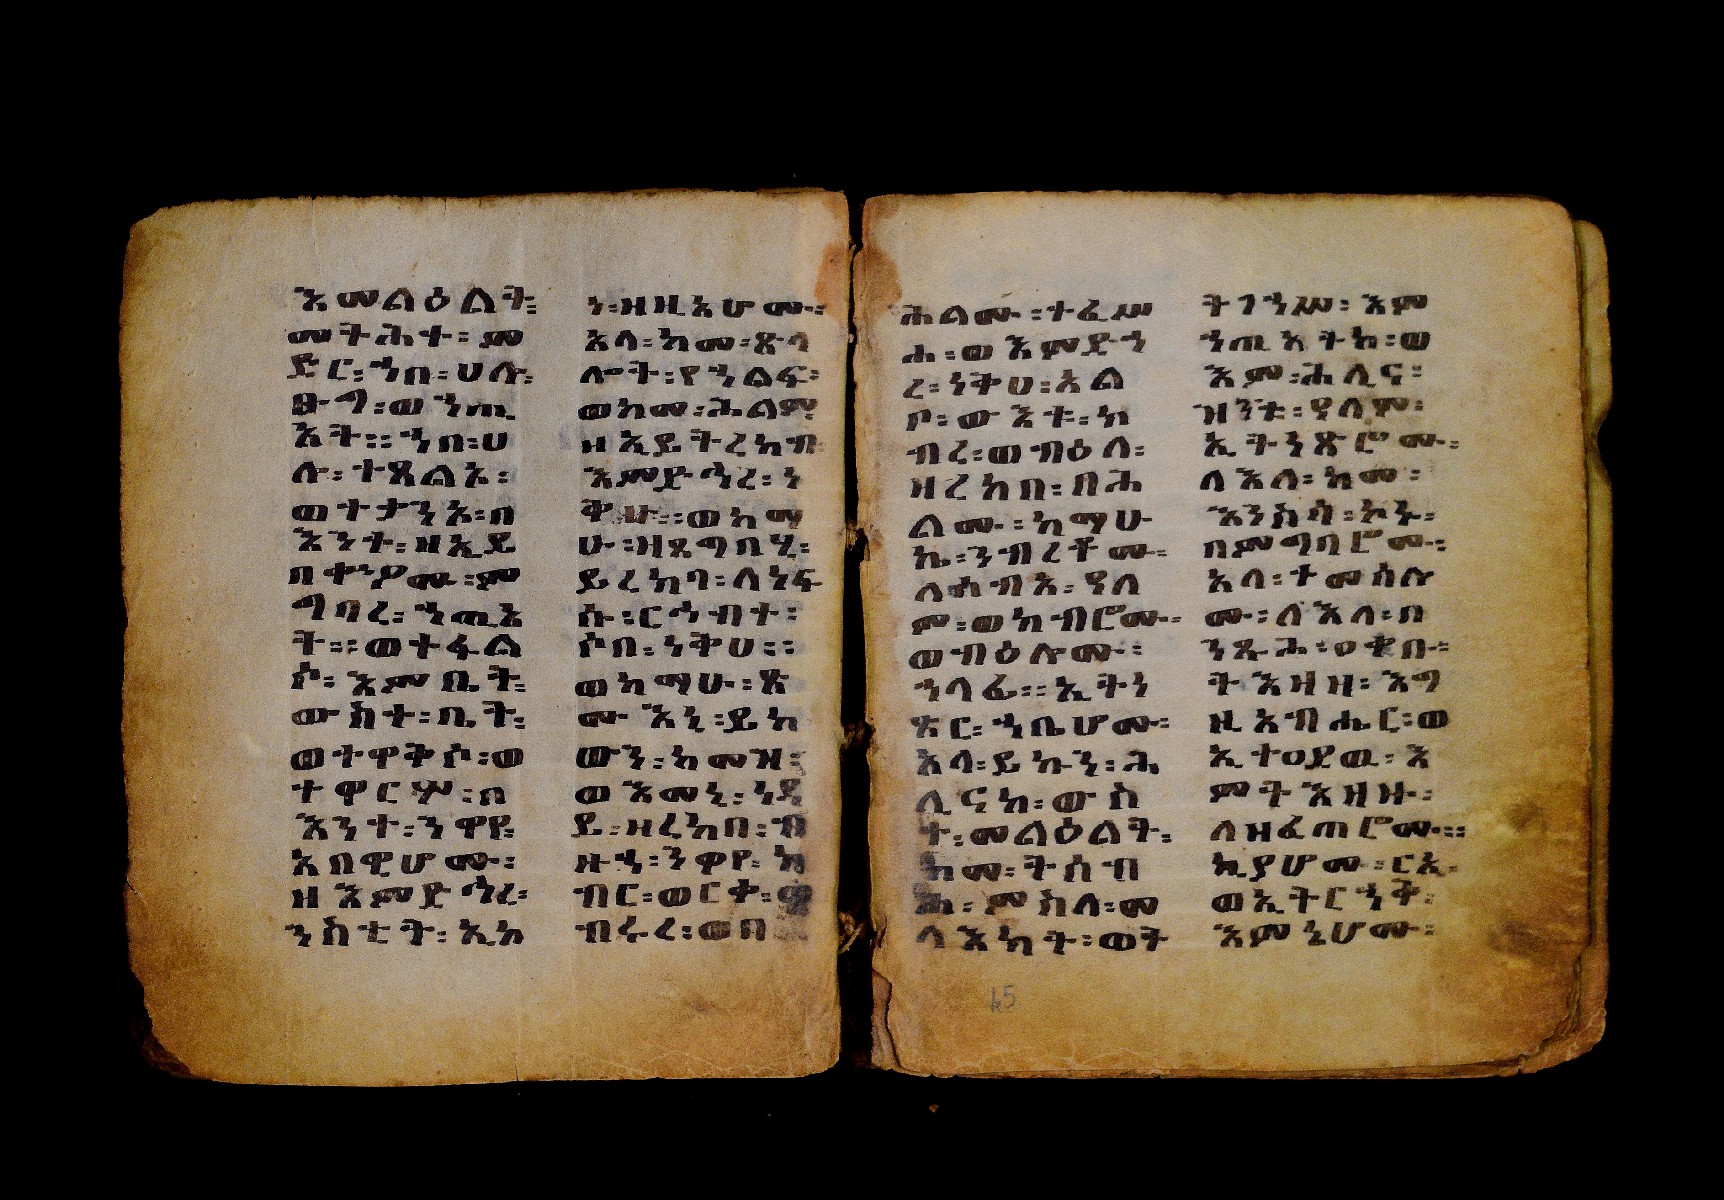 እመልዕልት፡
መትሕተ፡ ም
ድር፡ ኀበ፡ ሀሉ፡
ፀጋ፡ ወኀጢ
አት። ኀበ፡ ሀ
ሉ፡ ተጼልአ፡
ወተታኅአ፡ በ
እንተ፡ ዘኢይ
በቍዎሙ፡ ም
ግባረ፡ ኀጢአ
ት። ወተፋል
ሶ፡ እምቤት፡
ውስተ፡ ቤት፡
ወተዋቅሶ፡ ወ
ተዋርሦ፡ በ
እንተ፡ ንዋየ፡
አበዊሆሙ፡
ዘእምድኅረ፡
ንስቲት፡ ኢኮ
ነ፡ ዘዚአሆሙ፡
አላ፡ ከመ፡ ጽላ
ሎት፡ የኀልፍ፡
ወከመ፡ ሕልም፡
ዘኢይትረከብ
እምድኅረ፡ ነ
ቅሀ። ወከማ
ሁ፡ ዘጸግበሂ፡
ይረከባ፡ ለነፍ
ሱ፡ ርኅብተ፡
ሶበ፡ ነቅሀ።
ወከማሁ፡ ጽ
ሙእኒ፡ ይከ
ውን፡ ከመዝ፡
ወእመኒ፡ ነዳ
ይ፡ ዘረከበ፡ ብ
ዙኀ፡ ንዋየ፡ ክ
ብር፡ ወርቀ፡
ብሩረ፡ ወበ
ሕልሙ፡ ተፈሥ
ሐ፡ ወእምድኅ
ረ፡ ነቅሀ፡ አል
ቦ፡ ውእቱ፡ ክ
ብረ፡ ወብዕለ፡
ዘረከበ፡ በሕ
ልሙ፡ ከማሁ
ኬ፡ ንብረቶሙ፡
ለሰብአ፡ ዓለ
ም፡ ወክብሮሙ፡
ወብዕሎሙ፡
ኀላፊ። ኢትነ
ጽር፡ ኀቤሆሙ፡
አላ፡ ይኩን፡ ሕ
ሊናከ፡ ውስ
ተ፡ መልዕልት፡
ከመ፡ ትሰብ
ሕ፡ ምስለ፡ መ
ላእክት፡ ወት
ትገኀሥ፡ እም
ኀጢአትከ፡ ወ
እም፡ ሕሊና፡
ዝንቱ፡ ዓለም፡
ኢትነጽሮሙ፡
ለእለ፡ ከመ፡
እንስሳ፡ ኮኑ፡
በምግባሮሙ፡
አላ፡ ተመሰሎ
ሙ፡ ለእለ፡ በ
ንጽሕ፡ ዐቀቡ፡
ትእዛዘ፡ እግ
ዚአብሔር፡ ወ
ኢተዐደዉ፡ እ
ምትእዛዙ፡
ለዘፈጠሮሙ።
ኪያሆሙ፡ ርኢ፡
ወኢትርኀቅ፡
እምኔሆሙ፡
65